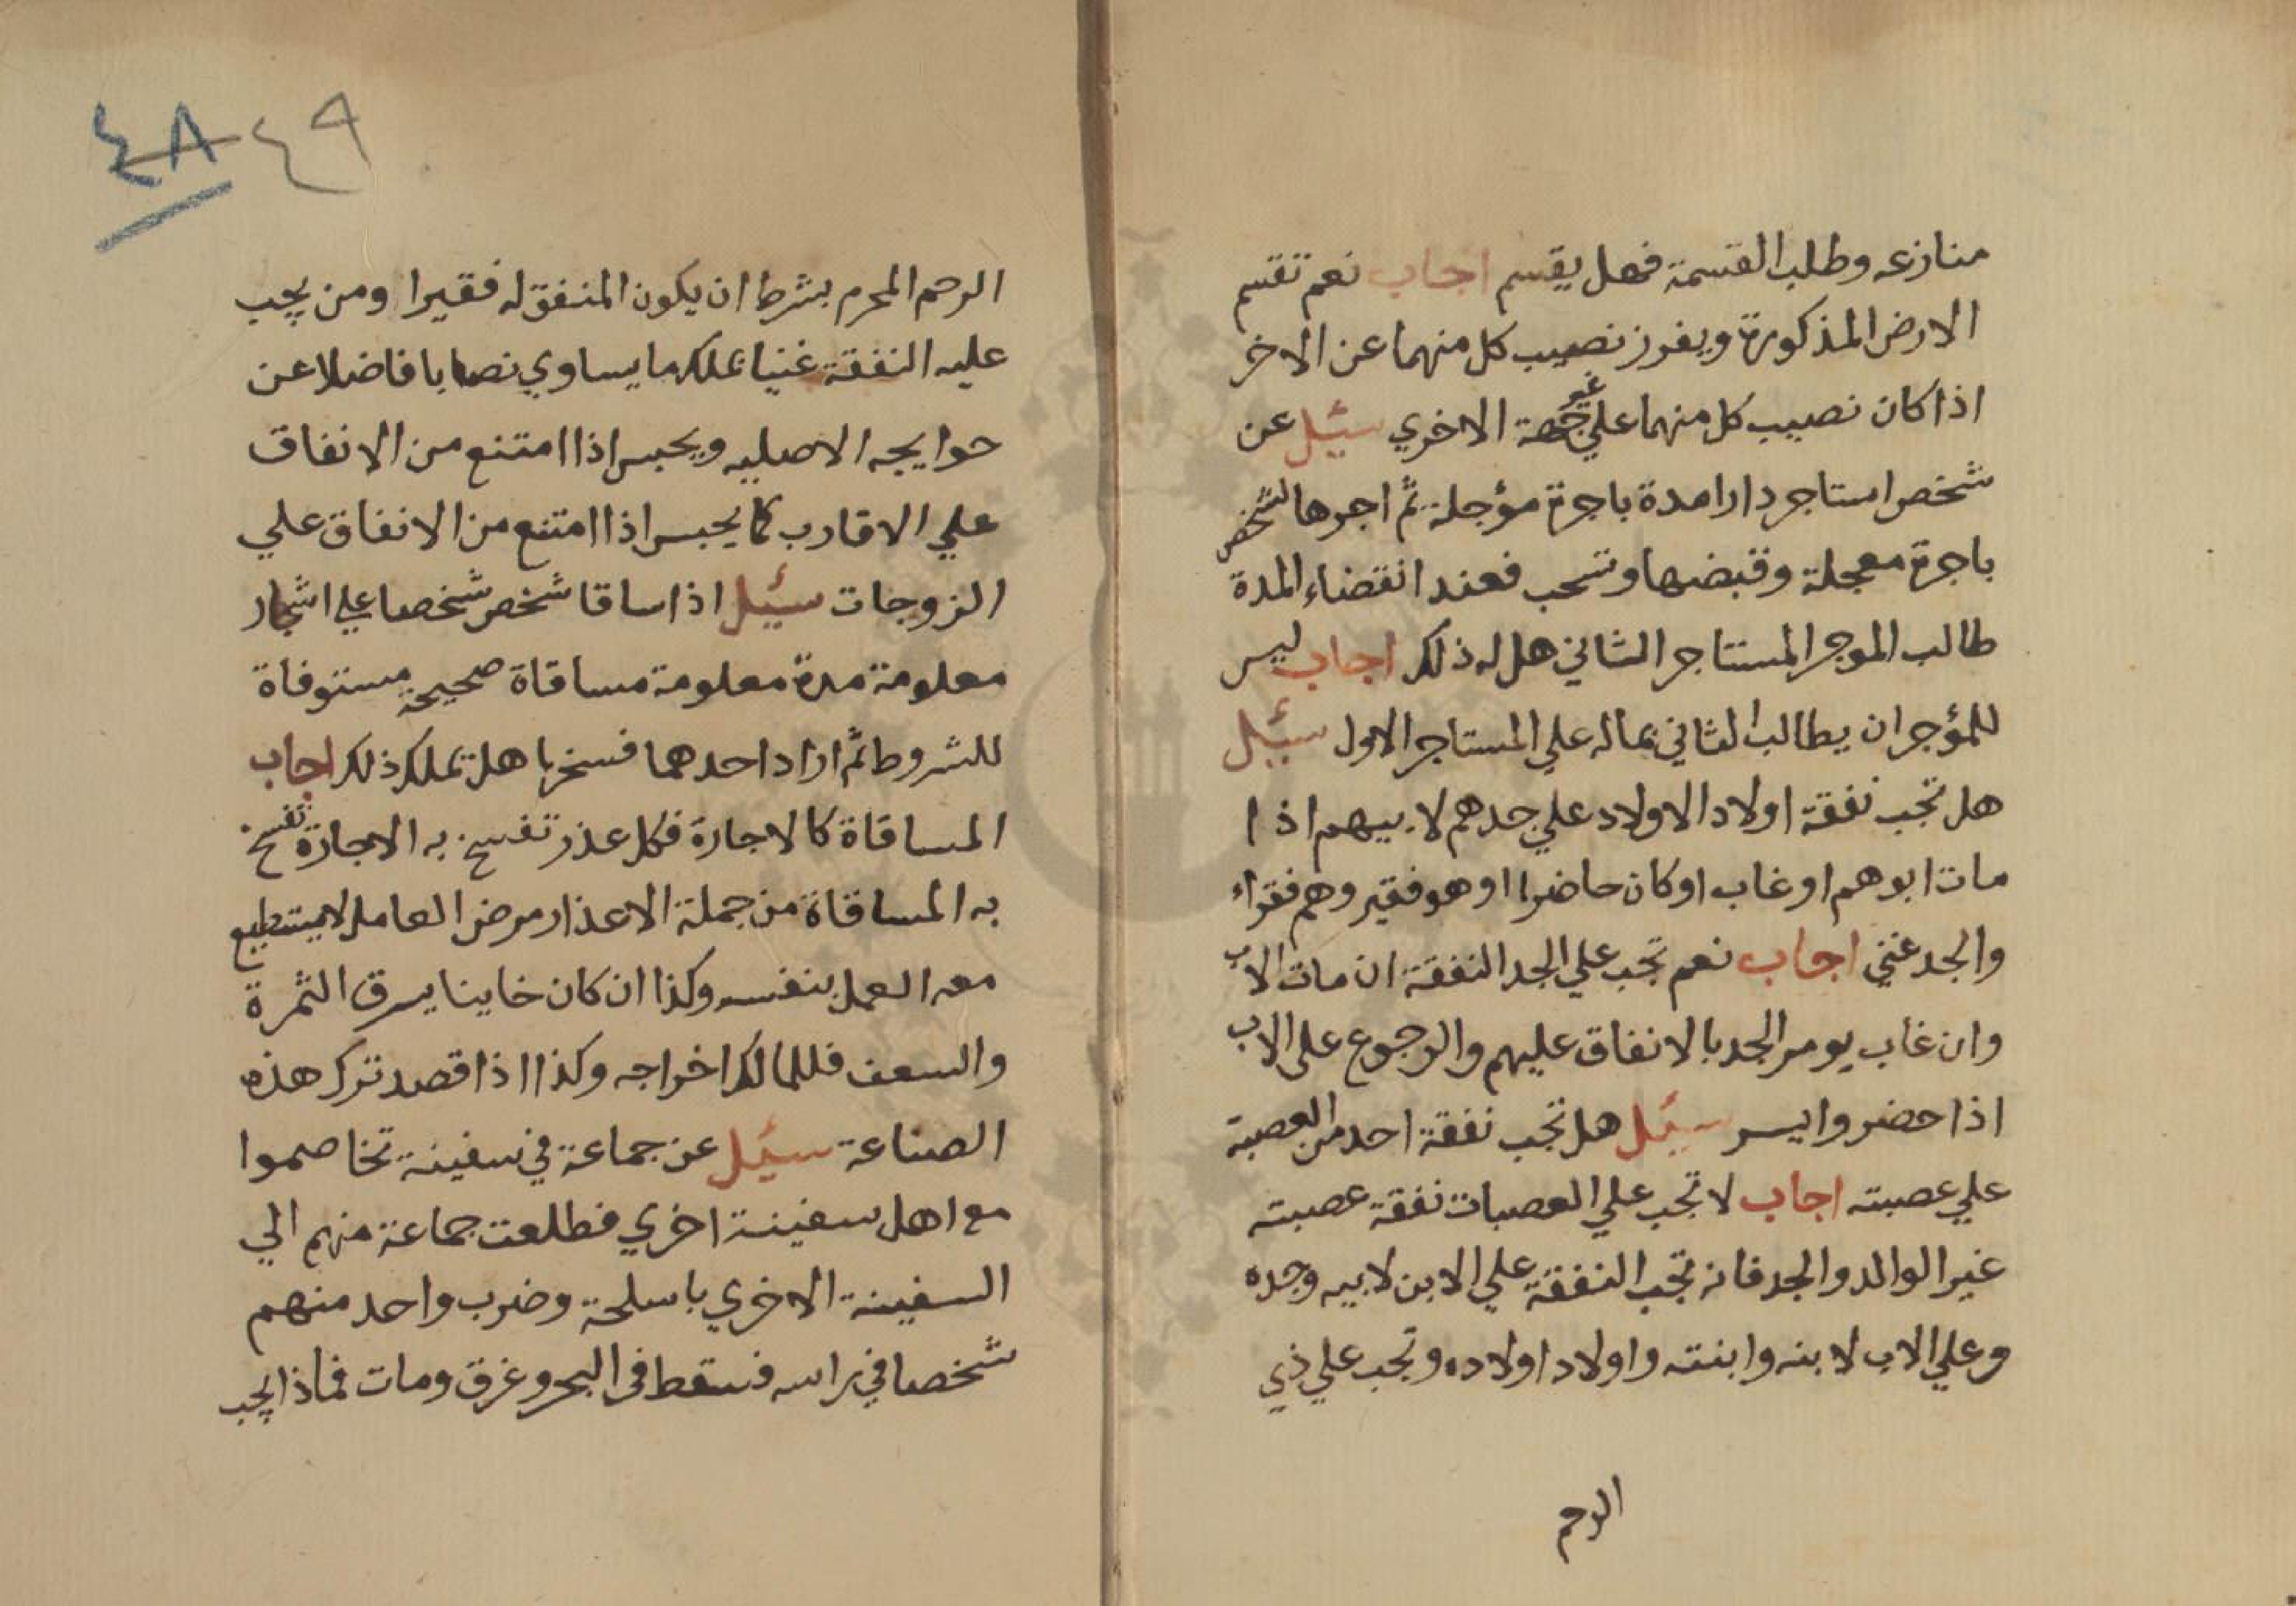 منازعه وطلب القسمة فهل يقسم اجاب نعم تقسم
الارض المذكورة ويفرز نصيب كل منهما عن الاخر
اذا كان نصيب كل منهما علي حصة الاخري سئيل عن
شخص استاجر دارا مدة باجرة مؤجلة ثم اجرها لشخص
باجرة معجلة وقبضها وسحب فعند انقضاء المدة
طالب الموجر المستاجر الثاني هل له ذلك اجاب ليس
للمؤجر ان يطالب الثاني بماله علي المستاجر الاول سئيل
هل تجب نفقة اولاد الاولاد علي جدهم لابيهم اذا
مات ابوهم او غاب او كان حاضرا او هو فقير وهم فقراء
والجد غني اجاب نعم تجب علي الجد النفقة ان مات الاب
وان غاب يومر الجد بالانفاق عليهم والرجوع على الاب
اذا حضر وايسر سئيل هل تجب نفقة احد من العصبة
علي عصبته اجاب لا تجب علي العصبات نفقة عصبته
غير الوالد والجد فانه تجب النفقة علي الابن لابيه وجده
وعلي الاب لابنه وابنته واولاد اولاده وتجب علي ذي
الرحم
٤٨ ٤٩
الرحم المحرم بشرط ان يكون المنفق له فقيرا ومن يجب
عليه النفقة غنيا يملك ما يساوي نصابا فاضلا عن
حوايجه الاصليه ويحبس اذا امتنع من الانفاق
علي الاقارب كما يحبس اذا امتنع من الانفاق علي
الزوجات سئيل اذا ساقا شخص شخصا علي اشجار
معلومة مدة معلومة مساقاة صحيحة مستوفاة
للشروط ثم اراد احدهما فسخها هل يملك ذلك اجاب
المساقاة كالاجارة فكل عذر تفسخ به الاجارة تفسخ
به المساقاة من جملة الاعذار مرض العامل لا يستطيع
معه العمل بنفسه وكذا ان كان خاينا يسرق الثمرة
والسعف فللمالك اخراجه وكذا اذا قصد ترك هذه
الصناعة سئيل عن جماعة في سفينة تخاصموا
مع اهل سفينة اخري فطلعت جماعة منهم الي
السفينة الاخري باسلحة وضرب واحد منهم
شخصا في راسه فسقط في البحر وغرق ومات فماذا يجب